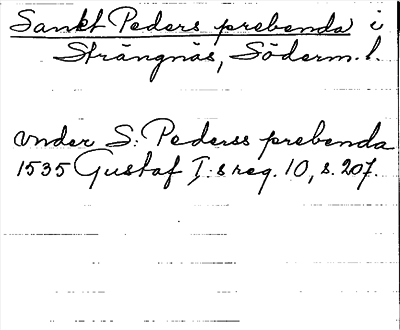 Sankt Peders prebenda i
Strängnäs, Söderm. l.
under S: Pederss prebenda
1535 Gustaf I:s reg. 10, s. 207.